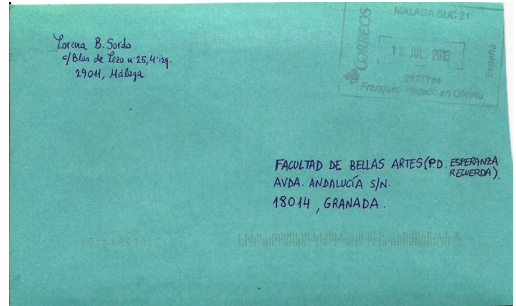 Lorena B. Sordo
c/Blas de Lezo nº 25, 4º izq.
29011, Málaga
MALAGA SUC 21
CORREOS
12 JUL. 2013
España
Franqueo Pagado en Oficina
FACULTAD DE BELLAS ARTES (P.D. ESPERANZA
RECUERDA).
AVDA. ANDALUCÍA S/N.
18014, GRANADA.